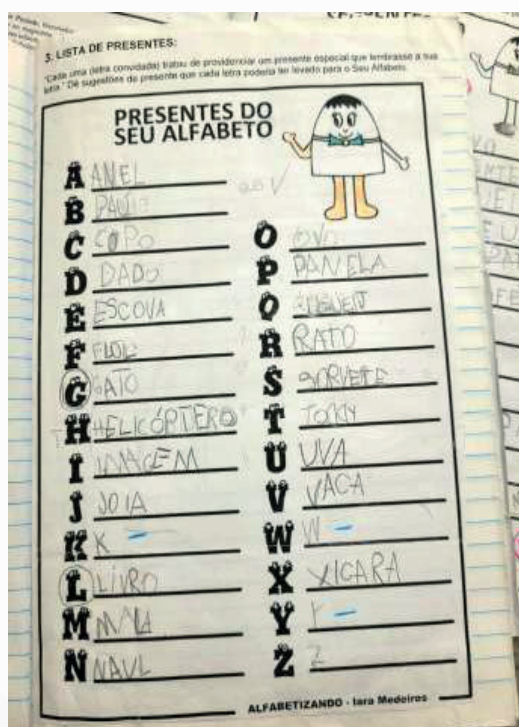 3. LISTA DE PRESENTES:
"Cada uma (letra convidada) tratou de providenciar um presente especial que lembrasse a sua
letra." Dê sugestões do presente que cada letra poderia ter levado para o Seu Alfabeto.
PRESENTES DO
SEU ALFABETO
A ANEL
B
C COPO
D DADO
E ESCOVA
F
G GATO
H HELICÓPTERO
I IMAGEM
J JOIA
K K -
L LIVRO
M
N
O OVO
P PANELA
Q
R RATO
S SORVETE
T
U UVA
V VACA
W W -
X XICARA
Y Y -
Z Z
ALFABETIZANDO - Iara Medeiros